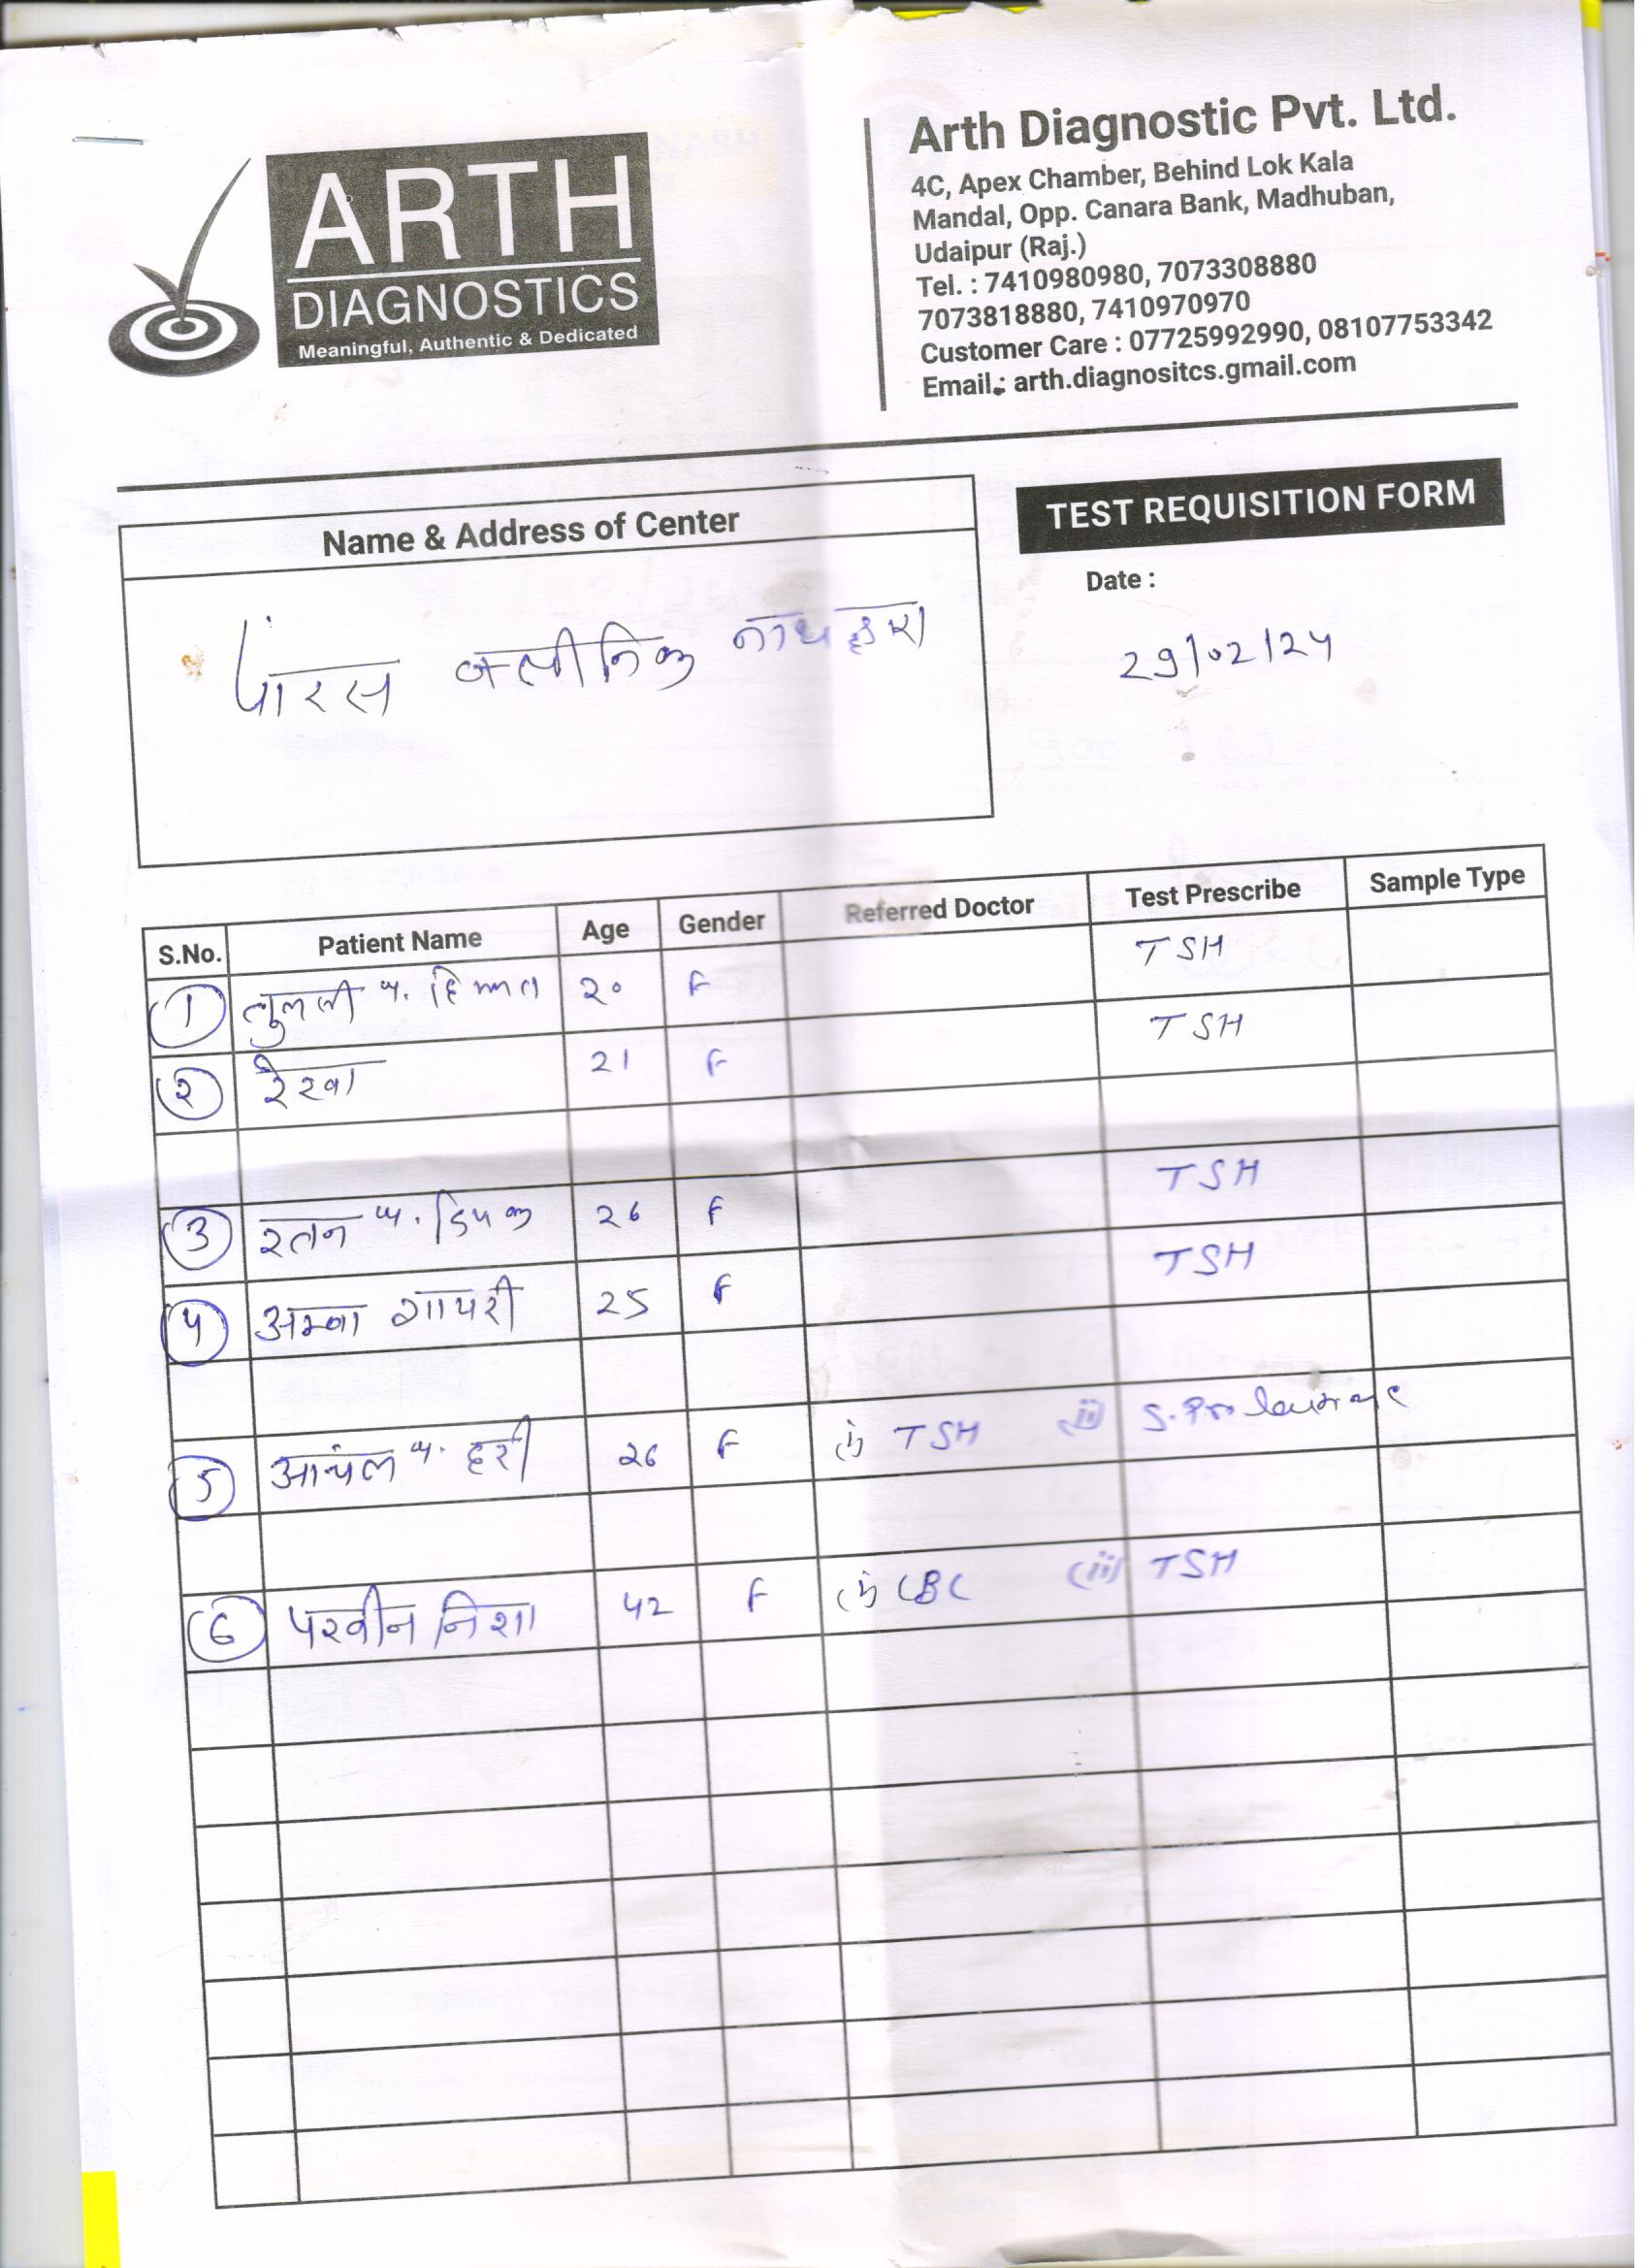 ARTH
DIAGNOSTICS
Meaningful, Authentic & Dedicated
Arth Diagnostic Pvt. Ltd.
4C, Apex Chamber, Behind Lok Kala
Mandal, Opp. Canara Bank, Madhuban,
Udaipur (Raj.)
Tel. : 7410980980, 7073308880
7073818880, 7410970970
Customer Care : 07725992990, 08107753342
Email.: arth.diagnositcs.gmail.com
Name & Address of Center
पारस क्लीनिक नाथद्वारा
TEST REQUISITION FORM
Date :
29/02/24
S.No. Patient Name Age Gender Referred Doctor Test Prescribe Sample Type
1 तुलसी प. हिम्मत 20 F TSH
2 रेखा 21 F TSH
3 रतन प. डिपक 26 F TSH
4 अम्बा गायरी 25 F TSH
5 आंचल प. हरी 26 F (i) TSH (ii)
6 परवीन निशा 42 F (i) CBC (ii) TSH